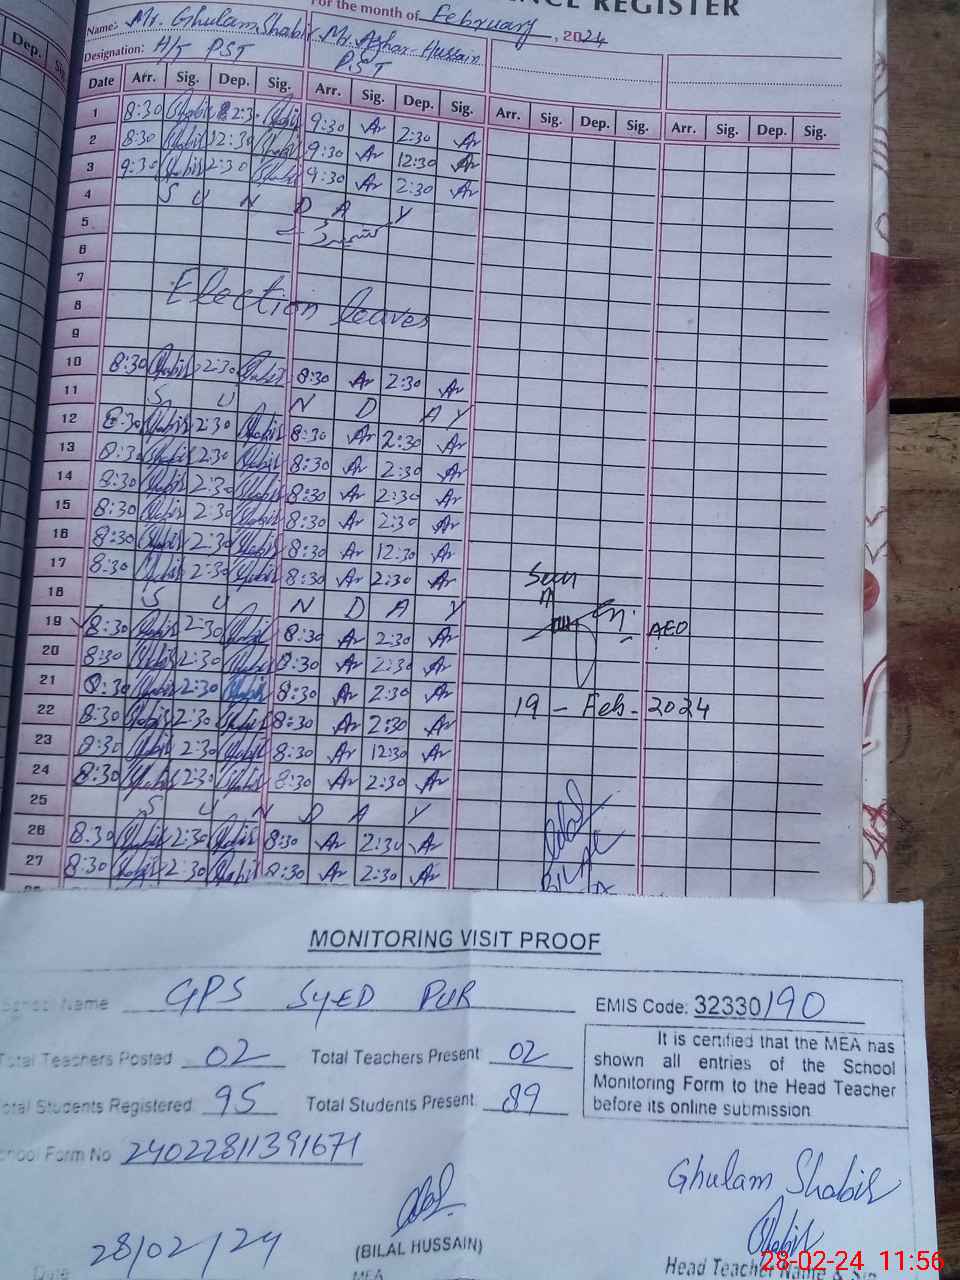 NCE REGISTER
For the month of February, 2024
Name: Mr. Ghulam Shabir Mr. Azhar Hussain
Designation: H/T PST PST
Dep.
Date Arr. Sig. Dep. Sig. Arr. Sig. Dep. Sig. Arr. Sig. Dep. Sig. Arr. Sig. Dep. Sig.
1 8:30 Shabir 2:30 Shabir 9:30 Ar 2:30 Ar
2 8:30 Shabir 12:30 Shabir 9:30 Ar 12:30 Ar
3 9:30 Shabir 2:30 Shabir 9:30 Ar 2:30 Ar
4 S U N D A Y
5
6
7
8 Election leaves
9
10 8:30 Shabir 2:30 Shabir 8:30 Ar 2:30 Ar
11 S U N D A Y
12 8:30 Shabir 2:30 Shabir 8:30 Ar 2:30 Ar
13 8:30 Shabir 2:30 Shabir 8:30 Ar 2:30 Ar
14 8:30 Shabir 2:30 Shabir 8:30 Ar 2:30 Ar
15 8:30 Shabir 2:30 Shabir 8:30 Ar 2:30 Ar
16 8:30 Shabir 2:30 Shabir 8:30 Ar 12:30 Ar
17 8:30 Shabir 2:30 Shabir 8:30 Ar 2:30 Ar
18 S U N D A Y
19 8:30 Shabir 2:30 Shabir 8:30 Ar 2:30 Ar AEO
20 8:30 Shabir 2:30 Shabir 8:30 Ar 2:30 Ar
21 8:30 Shabir 2:30 Shabir 8:30 Ar 2:30 Ar
22 8:30 Shabir 2:30 Shabir 8:30 Ar 2:30 Ar 19 - Feb - 2024
23 8:30 Shabir 2:30 Shabir 8:30 Ar 12:30 Ar
24 8:30 Shabir 2:30 Shabir 8:30 Ar 2:30 Ar
25 S U N D A Y
26 8:30 Shabir 2:30 Shabir 8:30 Ar 2:30 Ar
27 8:30 Shabir 2:30 Shabir 8:30 Ar 2:30 Ar
BILAL
MONITORING VISIT PROOF
School Name GPS SYED PUR EMIS Code: 32330190
Total Teachers Posted 02 Total Teachers Present 02
Total Students Registered 95 Total Students Present 89
It is certified that the MEA has
shown all entries of the School
Monitoring Form to the Head Teacher
before its online submission
School Form No 24022811391671
Ghulam Shabir
Shabir
28/02/24
Date
(BILAL HUSSAIN)
MEA
Head Teacher Name & Sig
28-02-24 11:56